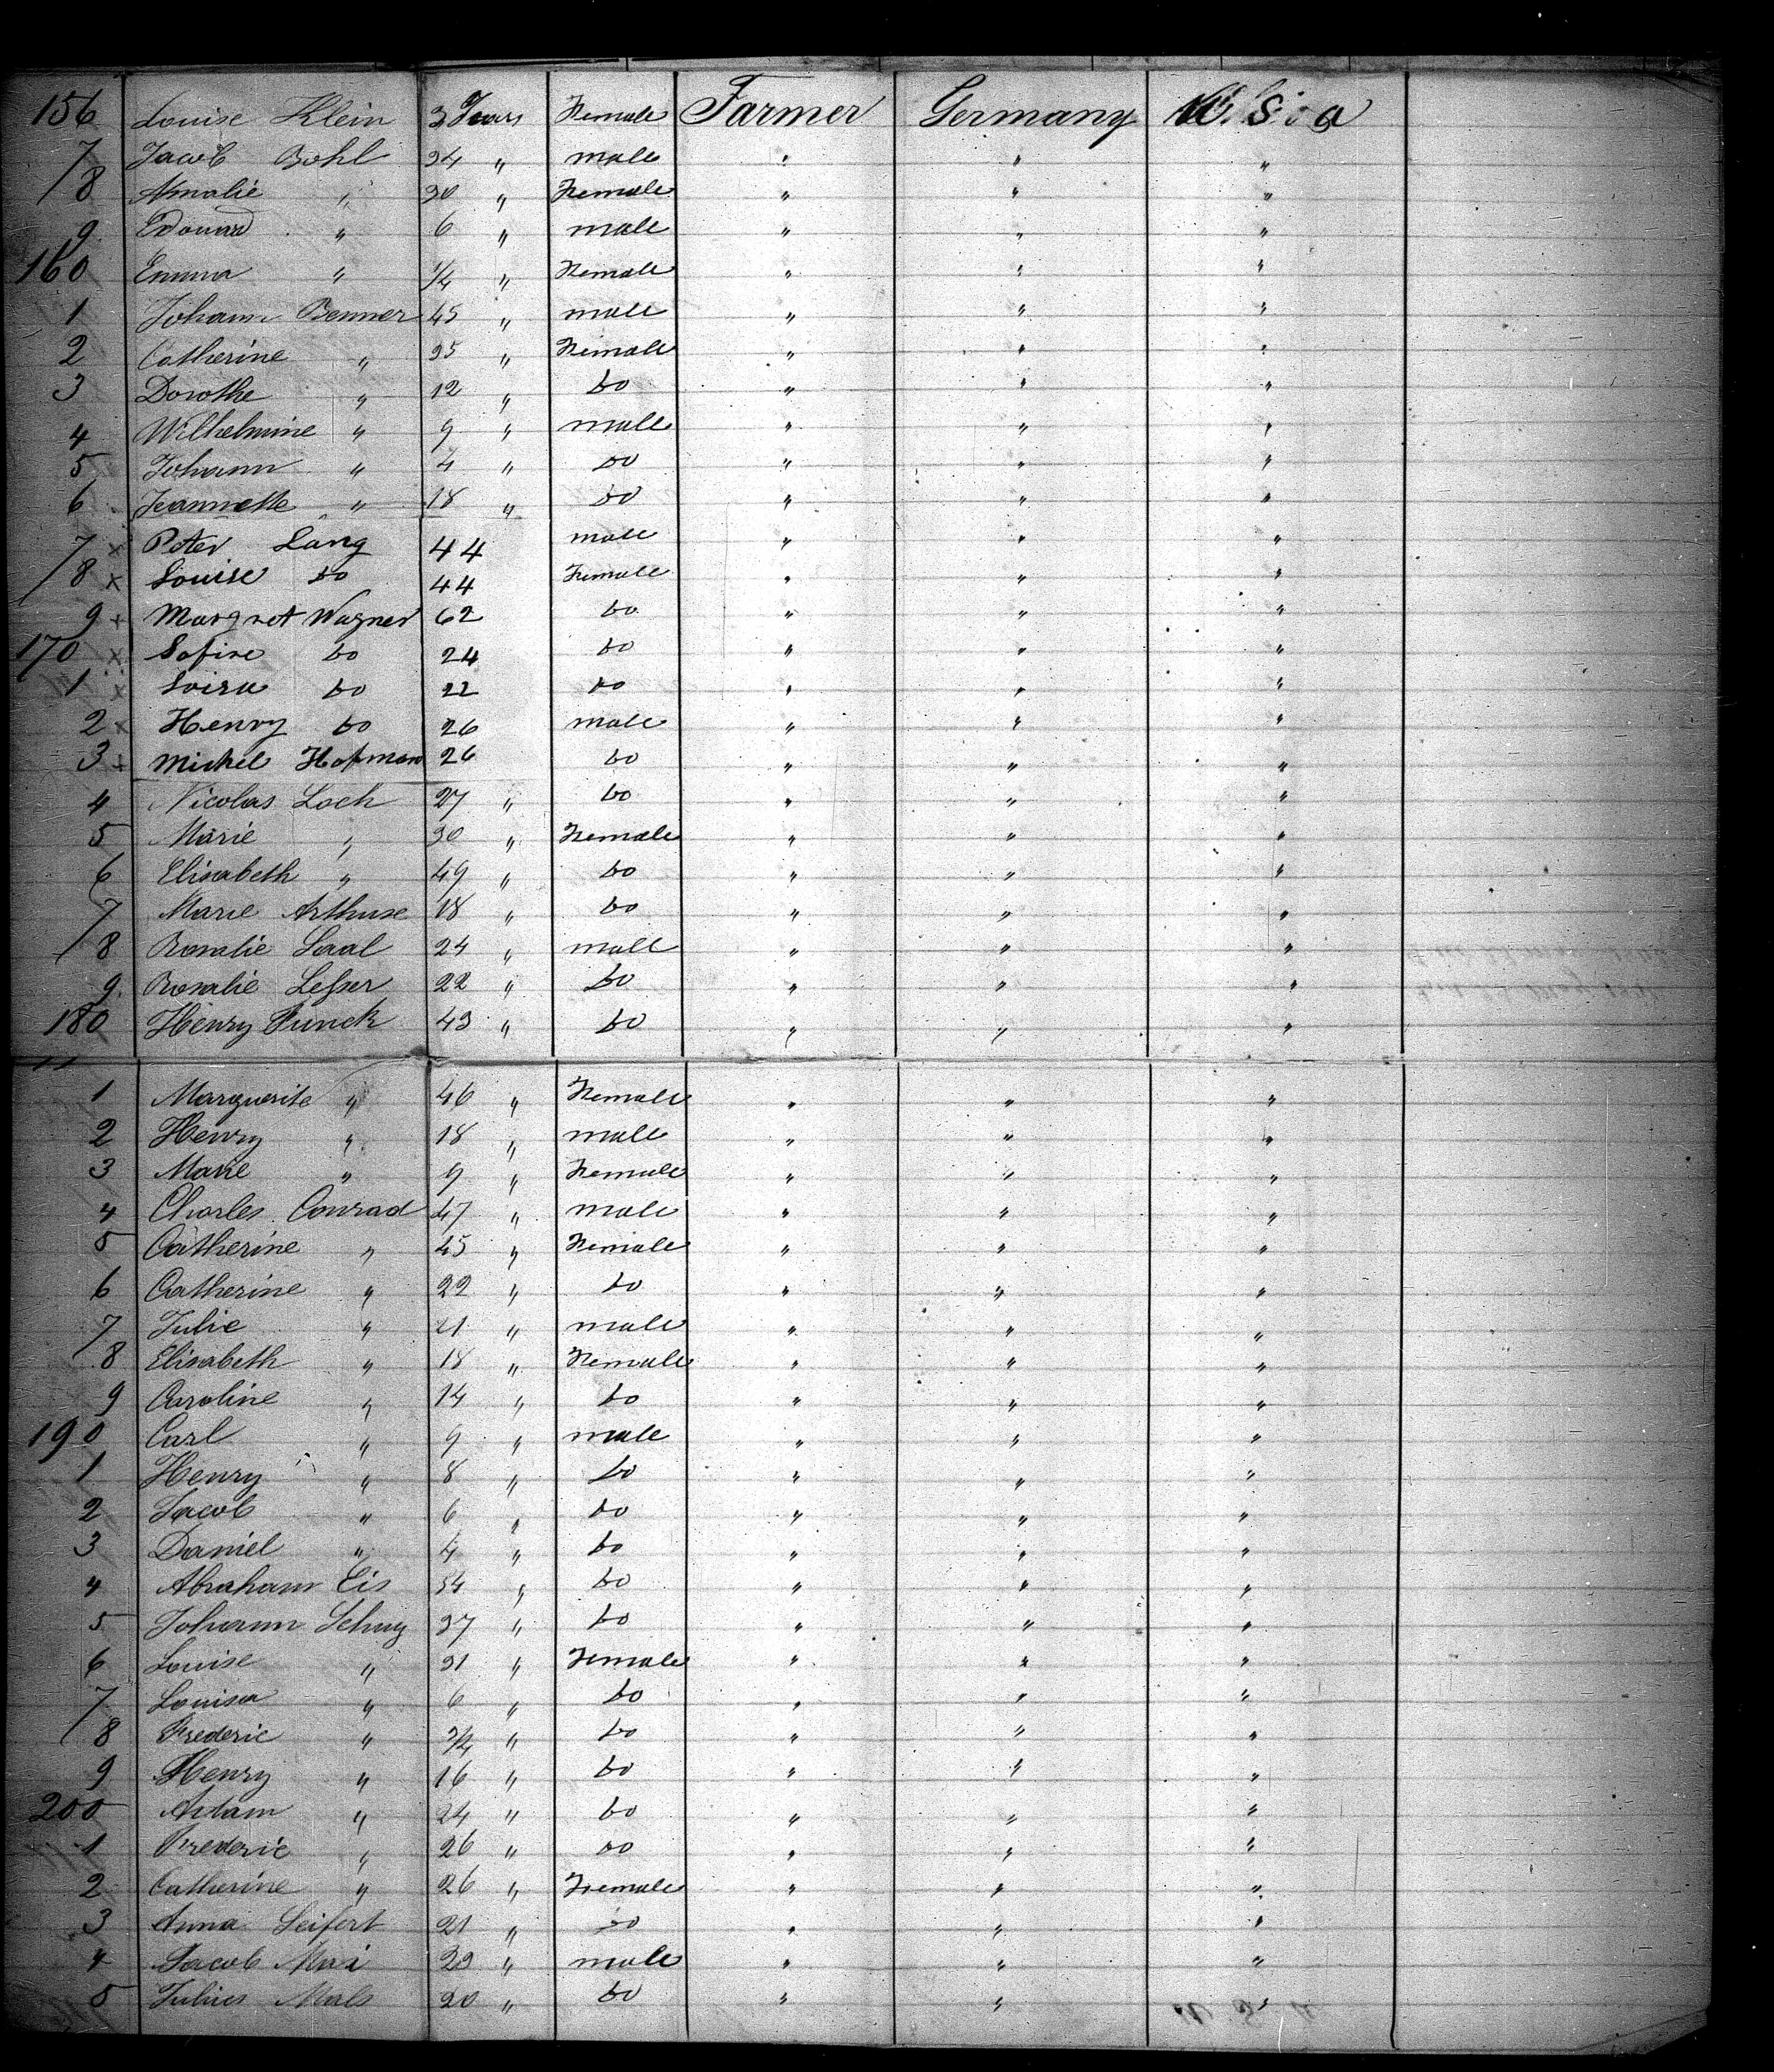 156 Louise Klein 3 Years Female Farmer Germany
7 Jacob Bohl 34 " male " " "
8 Amalie " 30 " Female " " "
9 Edouard " 6 " male " " "
160 Emma " 1/4 " Female " " "
1 Johann Benner 45 " male " " "
2 Catherine " 35 " Female " " "
3 Dorothe " 12 " do " " "
4 Wilhelmine " 9 " male " " "
5 Johann " 4 " do " " "
6 Jeannette " 18 " do " " "
7 x Peter Lang 44 male " " "
8 x Louise do 44 Female " " "
9 + Margret Wagner 62 do " " "
170 x Sofise do 24 do " " "
1 x Loisa do 22 do " " "
2 x Henry do 26 male " " "
3 + Michel Hofman 26 do " " "
4 Nicolas Loch 27 " do " " "
5 Marie " 30 " Female " " "
6 Elisabeth " 49 " do " " "
7 Marie Arthuse 18 " do " " "
8 Rosalie Saal 24 " male " " "
9 Rosalie Lesser 22 " do " " "
180 Henry Funck 43 " do " " "
1 Marguerite " 46 " Female " " "
2 Henry " 18 " male " " "
3 Marie " 9 " Female " " "
4 Charles Conrad 47 " male " " "
5 Catherine " 45 " Female " " "
6 Catherine " 22 " do " " "
7 Julie " 21 " male " " "
8 Elisabeth " 18 " Female " " "
9 Caroline " 14 " do " " "
190 Carl " 9 " male " " "
1 Henry " 8 " do " " "
2 Jacob " 6 " do " " "
3 Daniel " 4 " do " " "
4 Abraham Eis 54 " do " " "
5 Johann Schug 37 " do " " "
6 Louise " 31 " Female " " "
7 Louisa " 6 " do " " "
8 Frederic " 3/4 " do " " "
9 Henry " 16 " do " " "
200 Adam " 24 " do " " "
1 Frederic " 26 " do " " "
2 Catherine " 26 " Female " " "
3 Anna Seifert 21 " do " " "
4 Jacob Mai " male " " "
5 Julius Mals 20 " do " " "